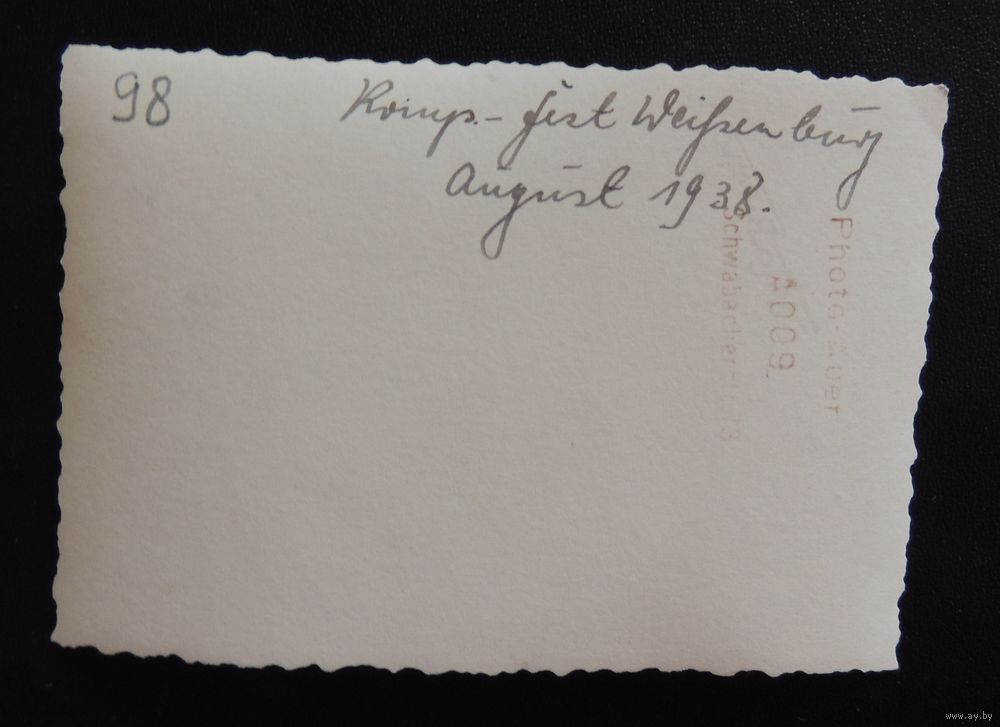 98
Komp.- fest Weißenburg
August 1938.
Photo-Auer
A009.
Schwabacherstr. 73
www.ay.by